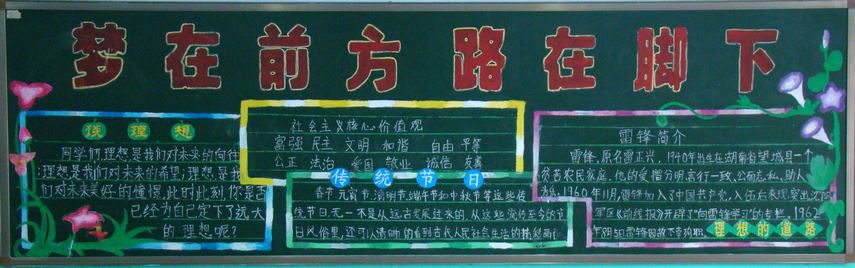 梦在前方 路在脚下
谈理想
同学们，理想，是我们对未来的向往
；理想是我们对未来的希望；理想，是我
们对未来美好的憧憬，此时此刻，你是否
已经为自己定下了远大
的理想呢？
社会主义核心价值观
富强 民主 文明 和谐 自由 平等
公正 法治 爱国 敬业 诚信 友善
传统节日
春节、元宵节、清明节、端午节和中秋节等这些传
统节日，无一不是从远古发展过来的，从这些流传至今的节
日风俗里，还可以清晰的看到古代人民社会生活的精彩画面
雷锋简介
雷锋，原名雷正兴，1940年出生在湖南省望城县一个
贫苦农民家庭。他的爱憎分明，言行一致，公而忘私，助人
1960年11月，雷锋加入了中国共产党，入伍后表现突出，沈阳
军区《前线报》开辟了“向雷锋学习”的专栏。1962
年8月15日雷锋因故不幸殉职。
理想的道路